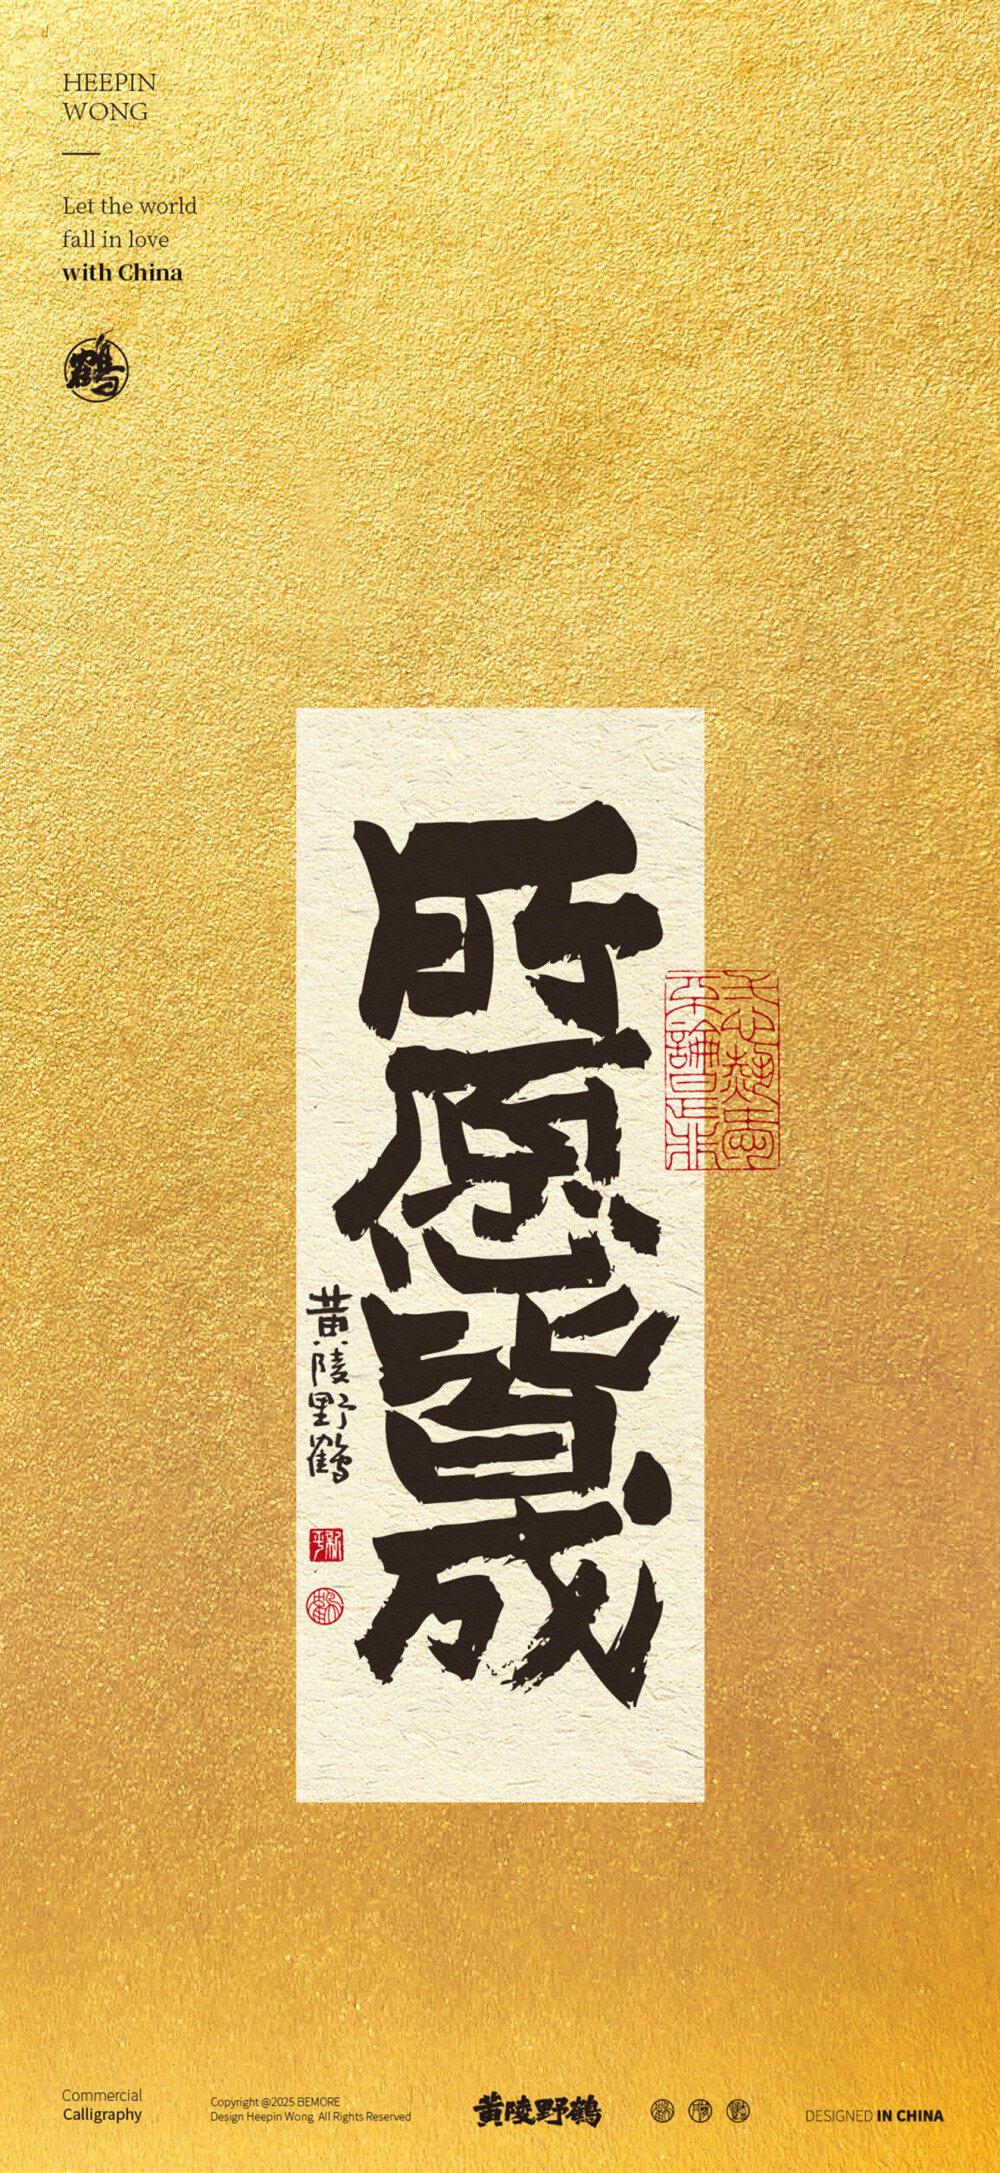 HEEPIN
WONG
Let the world
fall in love
with China
鹤
所愿皆成
黄陵野鹤
Commercial
Calligraphy
Copyright @2025 BEMORE
Design Heepin Wong All Rights Reserved
黄陵野鹤
DESIGNED IN CHINA